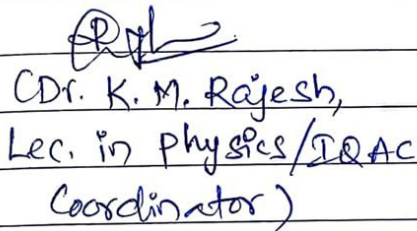 (Dr. K. M. Rajesh,
Lec. in physics/IQAC
Coordinator)